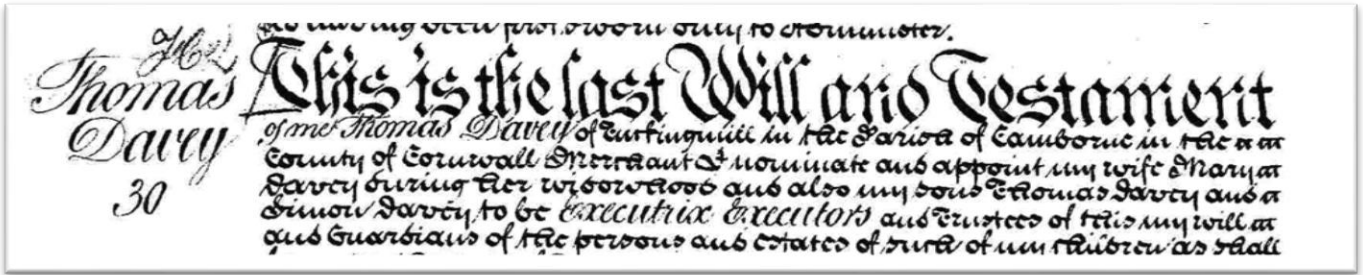 having been first sworn duly to administer.
Thomas
Davey
30
This is the last Will and Testament
of me Thomas Davey of Tuckingmill in the Parish of Camborne in the
County of Cornwall Merchant I nominate and appoint my wife Mary
Davey during her widowhood and also my sons Thomas Davey and
Simon Davey to be Executrix Executors and Trustees of this my will
and Guardians of the persons and estates of such of my children as shall